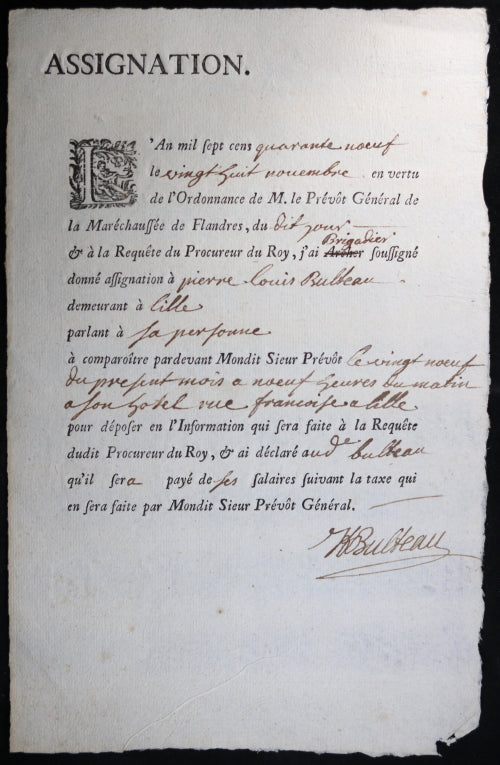 ASSIGNATION.
L'An mil ſept cens quarante noeuf
le vingt huit nouembre en vertu
de l'Ordonnance de M. le Prévôt Général de
la Maréchauſſée de Flandres, du dit jour
Brigadier
& à la Requête du Procureur du Roy, j'ai Archer ſouſſigné
donné aſſignation à pierre Louis Bulteau
demeurant à Lille
parlant à ſa perſonne
à comparoître pardevant Mondit Sieur Prévôt le vingt noeuf
du preſent mois a noeuf heures du matin
a son hotel rue francoiſe a lille
pour dépoſer en l'Information qui ſera faite à la Requête
dudit Procureur du Roy, & ai déclaré aud de bulteau
qu'il ſera payé de ſes ſalaires ſuivant la taxe qui
en ſera faite par Mondit Sieur Prévôt Général.
Bulteau